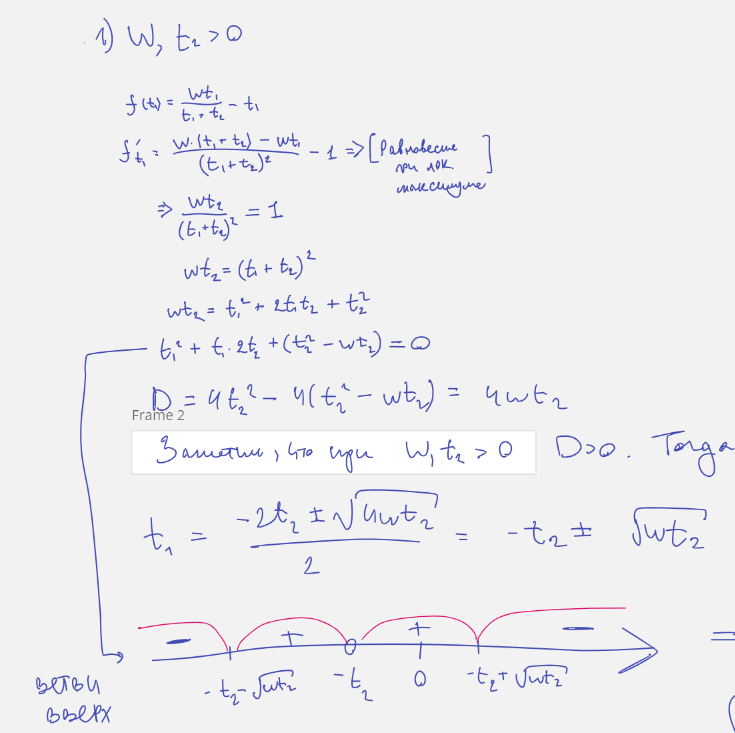 1) W, t₂ > 0
f(t₁) = Wt₁/(t₁ + t₂) - t₁
f'ₜ₁ = (W·(t₁ + t₂) - Wt₁)/(t₁ + t₂)² - 1 => [Равновесие при лок. максимуме]
=> Wt₂/(t₁+t₂)² = 1
wt₂ = (t₁ + t₂)²
wt₂ = t₁² + 2t₁t₂ + t₂²
t₁² + t₁·2t₂ + (t₂² - wt₂) = 0
D = 4t₂² - 4(t₂² - wt₂) = 4wt₂
Frame 2
Заметим, что при W, t₂ > 0 D>0. Тогда
t₁ = (-2t₂ ± √(4wt₂))/2 = -t₂ ± √(wt₂)
- + + -
-t₂-√(wt₂) -t₂ 0 -t₂+√(wt₂)
ветви
вверх